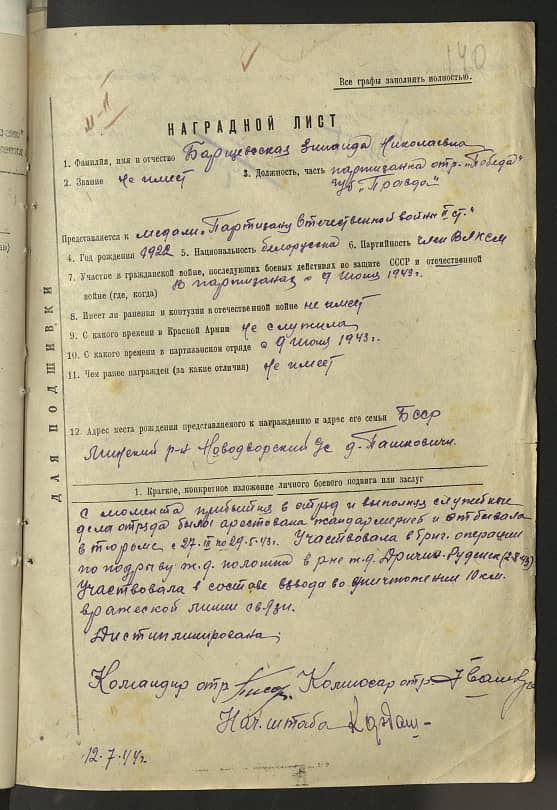 140
Все графы заполнять полностью.
НАГРАДНОЙ ЛИСТ
1. Фамилия, имя и отчество Барщевская Зинаида Николаевна
2. Звание не имет 3. Должность, часть партизанка отр. "Победа"
"Правда"
Представляется к медали "Партизану Отечественной войны II ст."
4. Год рождения 1922 5. Национальность белорусска 6. Партийность член ВЛКСМ
7. Участие в гражданской войне, последующих боевых действиях по защите СССР и отечественной
войне (где, когда) В партизанах с 9 июня 1943 г.
8. Имеет ли ранения и контузии в отечественной войне не имет
9. С какого времени в Красной Армии не служила
10. С какого времени в партизанском отряде с 9 июня 1943 г.
11. Чем ранее награжден (за какие отличия) не имет
12. Адрес места рождения представляемого к награждению и адрес его семьи БССР
Минский р-н Новодворский с/с д. Пашковичи.
1. Краткое, конкретное изложение личного боевого подвига или заслуг
С момента прибытия в отряд и выполняя служебные
дела отряда была арестована жандармерией и отбывала
в тюрьме с 27. по 29.5.43 г. Участвовала в бриг. операции
по подрыву ж.д. полотна в р-не ж.д. Дричин-Руденск
Участвовала в составе взвода по уничтожении 10 км.
вражеской линии связи.
Дистиплинирована;
Командир отр. Комиссар отр.
Нач. штаба Кардаш
12.7.44 г.
ДЛЯ ПОДШИВКИ